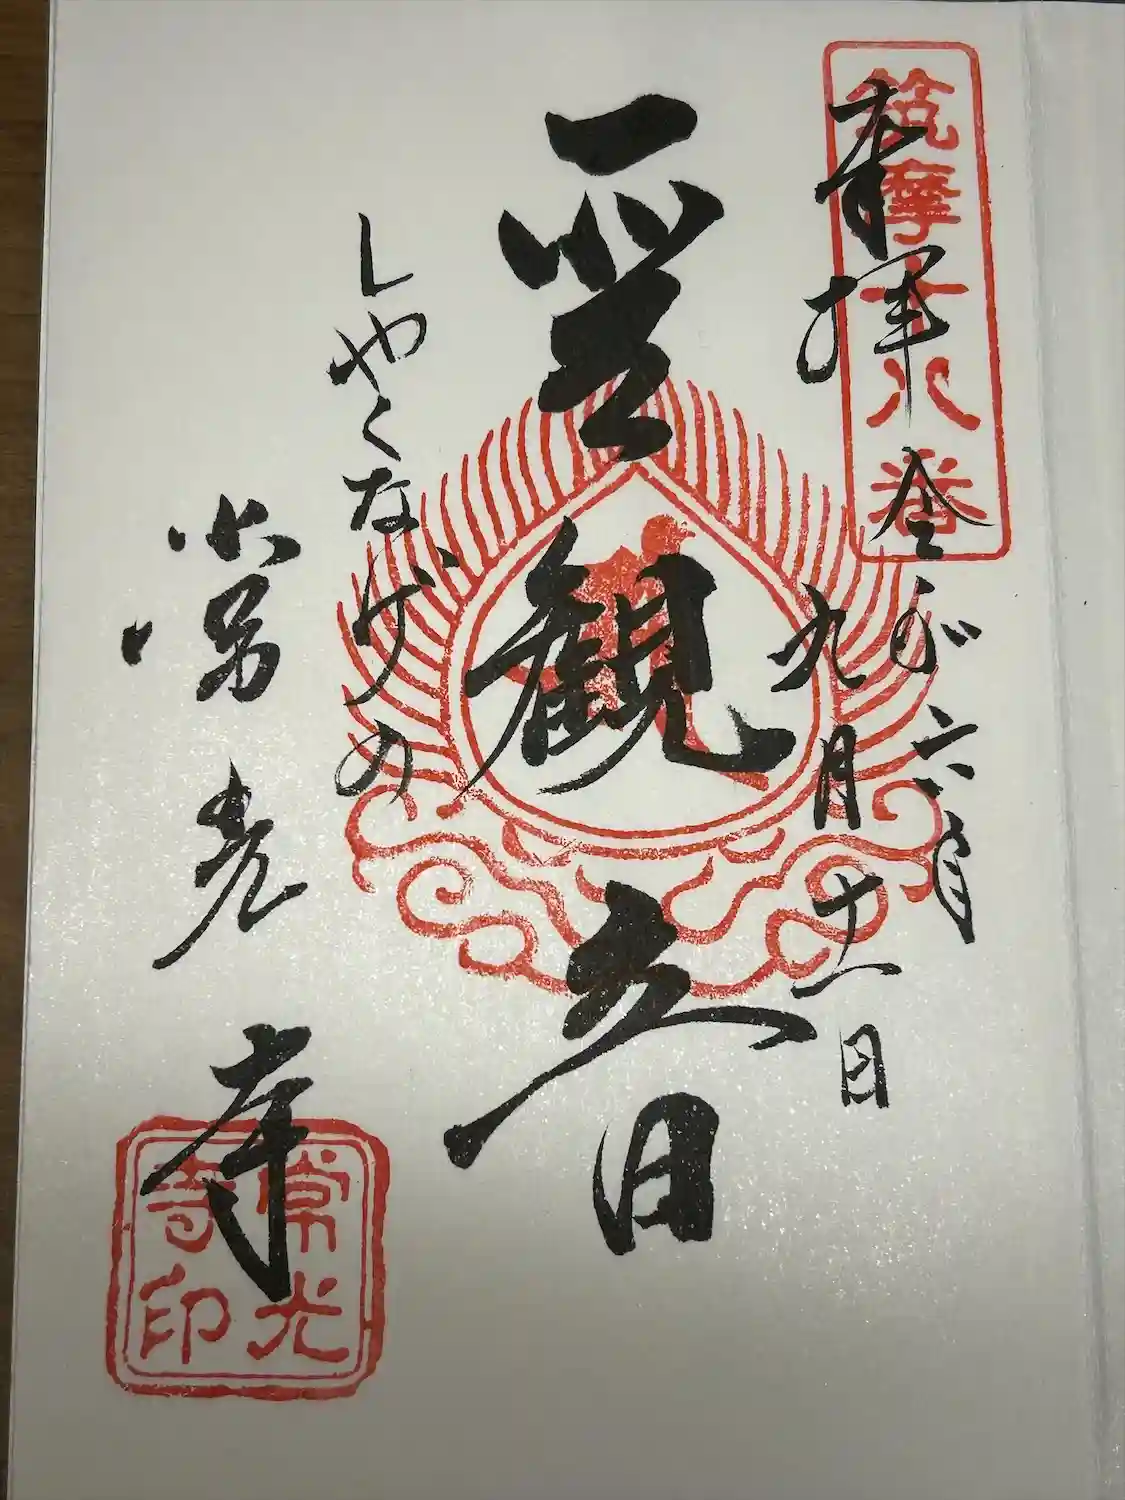 筑摩十八番
奉拝
令和六年
九月十一日
聖観音
しやくなげの
常光寺
常光寺印